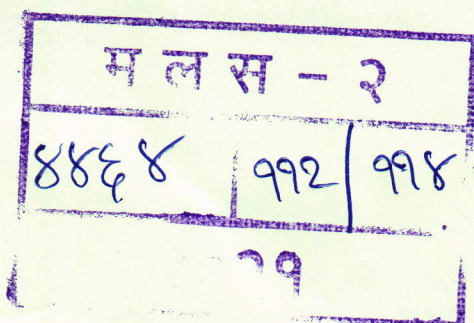 म ल स - २
४४६४ ११२/११४
२१